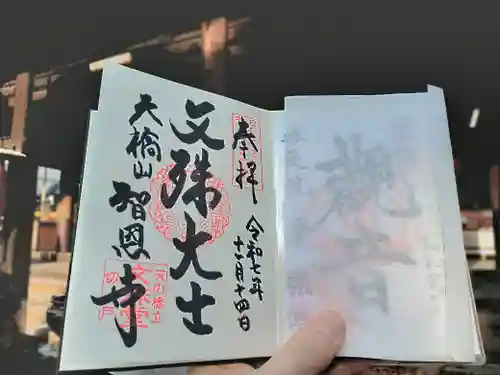 奉拝
令和七年
十一月十四日
文殊大士
天橋山
智恩寺
天の橋立
文殊堂